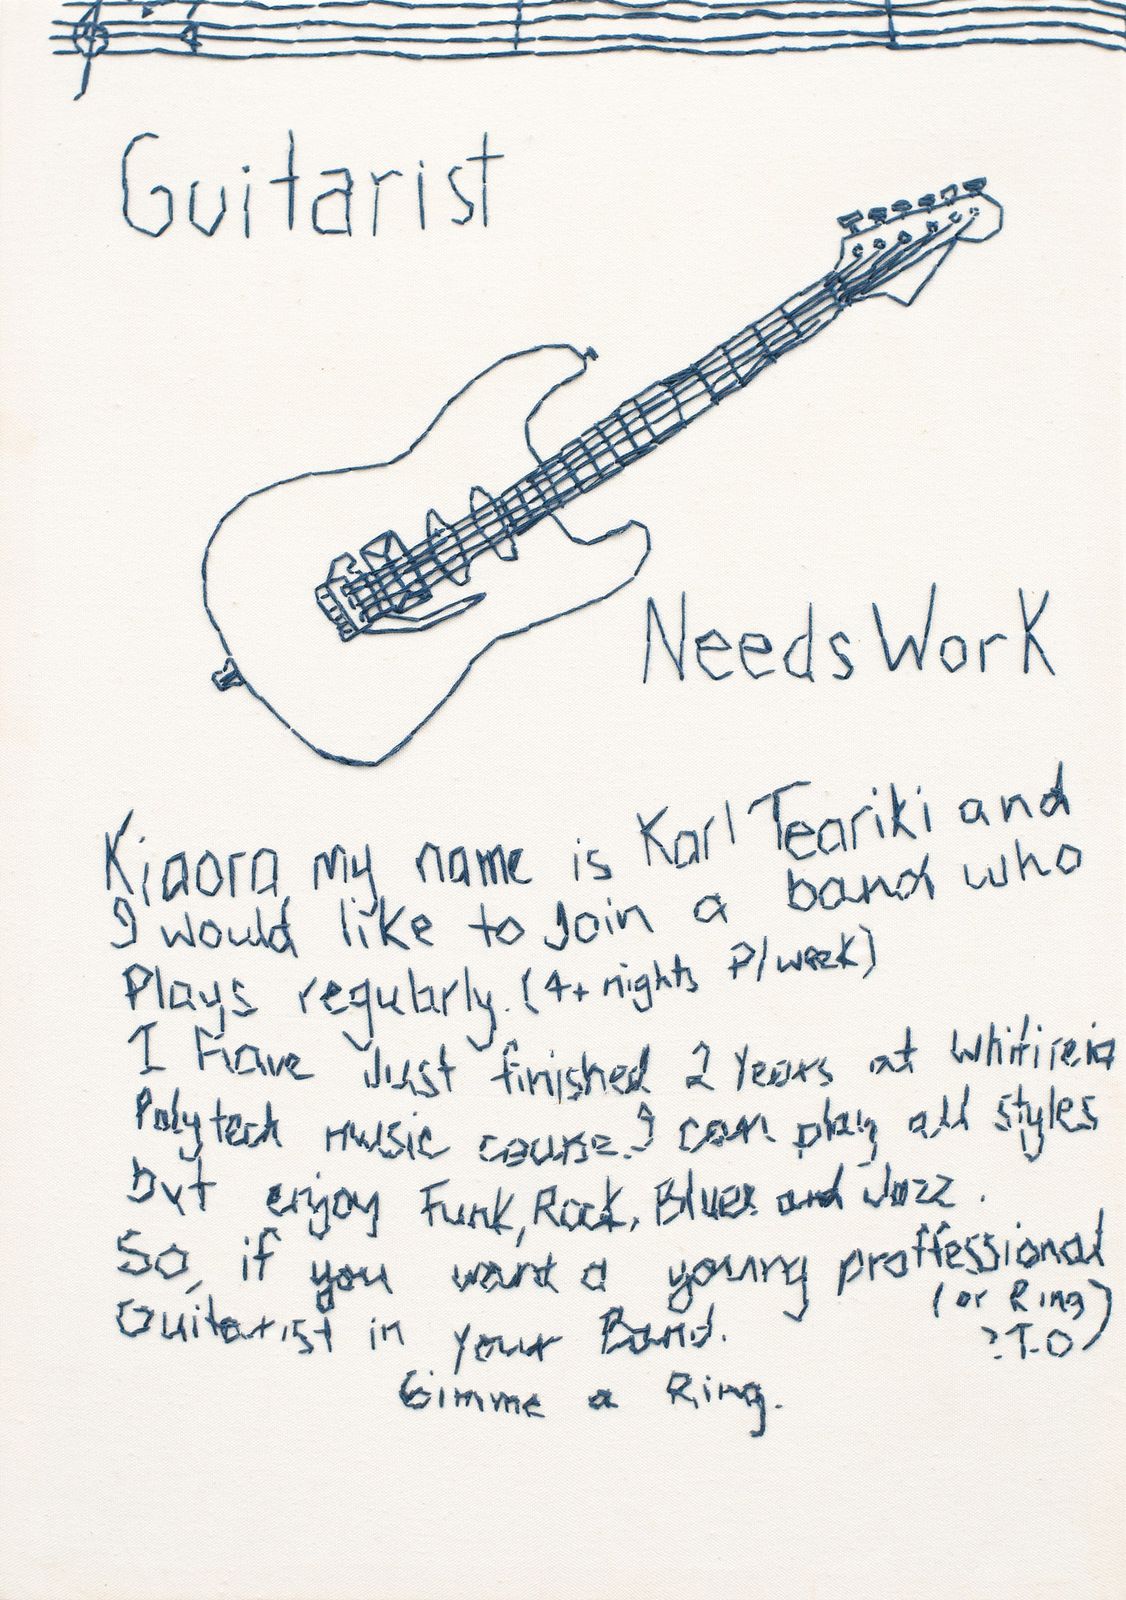 Guitarist
Needs Work
Kiaora, my name is Karl Teariki and
I would like to Join a band who
Plays regularly. (4+ nights P/week)
I have Just finished 2 Years at Whitireia
Polytech music course. I can play all styles
but enjoy Funk, Rock, Blues and Jazz.
So, if you want a young proffessional
Guitarist in your Band. (or Ring)
Gimme a Ring. P.T.O